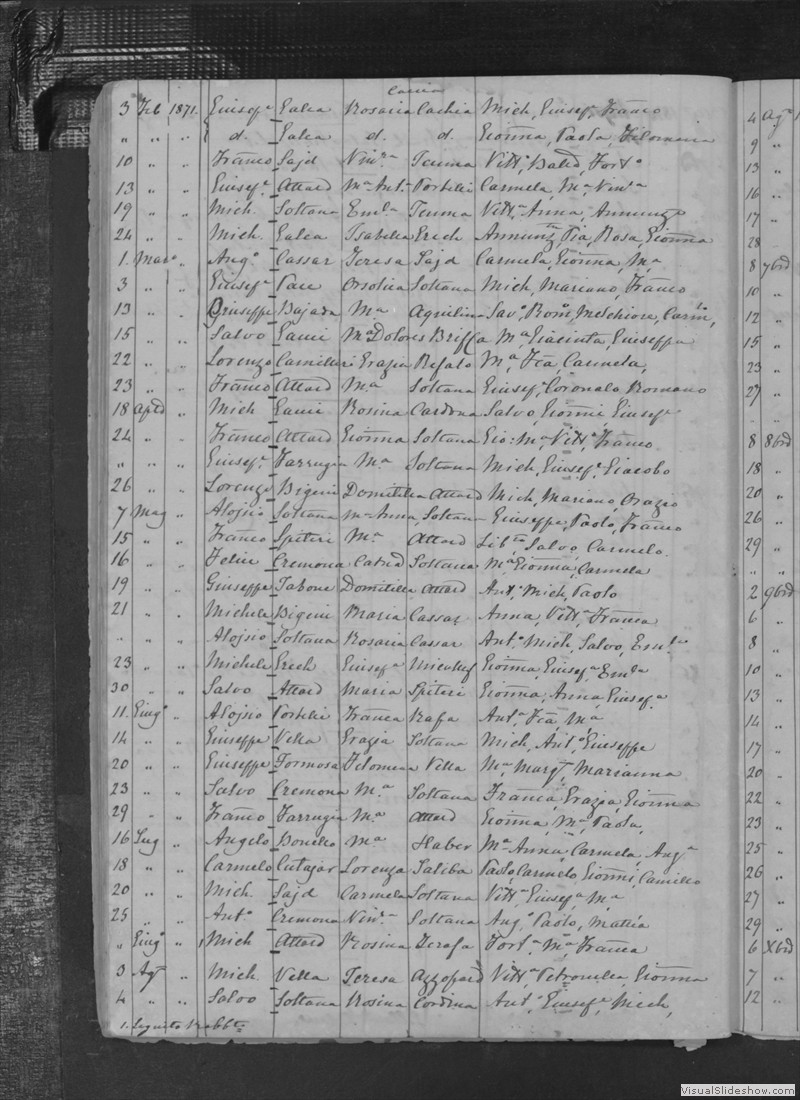 Cauci
3 Feb 1871. Giusepe Galea Rosaria Cachia Mich, Giusepe, Franco
" " " d. Galea d. d. Gioanna, Paola, Filomena
10 " " Franco Sajd Vinza Teuma Vitta Forto
13 " " Giusepe Attard Ma Anta Portelli Carmela, Ma Vinza
19 " " Mich. Soltana Emla Teuma Vitta Anna, Annunza
24 " " Mich. Galea Isabella Grech Annunza, Pia, Rosa, Gioanna
1. Marzo " Ango Cassar Teresa Sajd Carmela, Gioanna, Ma
3 " " Giusepe Pace Orsolica Soltana Mich, Mariano, Franco
13 " " Giuseppe Bajada Ma Aquilina Savo Romo, Melchiora, Carm,
15 " " Salvo Gauci Ma Dolores Briffa Ma Giacinta, Giuseppa
22 " " Lorenzo Camilleri Grazia Refalo Ma, Fca, Carmela,
23 " " Franco Attard Ma Soltana Giusepe, Coronato Romano
18 Aple " Mich Gauci Rosina Cardona Salvo, Gioanni, Giusepe
24 " " Franco Attard Gioanna Soltana Gio: Ma, Vitto, Franco
" " " Giusepe Farrugia Ma Soltana Mich, Giusepe, Giacobo
26 " " Lorenzo Bigeni Domitilla Attard Mich, Mariano, Orazio
7 Mag " Alojsio Soltana Ma Anna, Soltana Giuseppe, Paolo, Franco
15 " " Franco Spiteri Ma Attard Salvo, Carmelo
16 " " Felice Cremona Catad Soltana Ma Gioanna, Carmela
19 " " Giuseppe Tabone Domitilla Attard Anto, Mich, Paolo
21 " " Michele Bigeni Maria Cassar Anna, Vitta, Franca
" " " Alojsio Soltana Rosaria Cassar Anto, Mich, Salvo, Emle
23 " " Michele Grech Giusepa Micallef Gioanna, Giusepa Emla
30 " " Salvo Attard Maria Spiteri Gioanna, Anna, Giusepa
11. Giugo " Alojsio Portelli Franca Rapa Anta, Fca, Ma
14 " " Giuseppe Vella Grazia Soltana Mich, Anto, Giuseppe
20 " " Giuseppe Formosa Filomena Vella Ma, Margt, Marianna
23 " " Salvo Cremona Ma Soltana Franca, Grazia, Gioanna
29 " " Franco Farrugia Ma Attard Gioanna, Ma, Paola,
16 Lug " Angelo Bonello Ma Haber Ma Anna, Carmela, Anga
18 " " Carmelo Cutajar Lorenza Saliba Paolo, Carmelo, Gioanni, Camillo
20 " " Mich. Sajd Carmela Soltana Vitta, Giusepa, Ma
25 " " Anto Cremona Vinza Soltana Ango, Paolo, Mattia
" Giugo " 1 Mich Attard Rosina Zerafa Forta, Ma, Franca
3 Agt " Mich. Vella Teresa Azzopardi Vitta, Petronilla, Gioanna
4 " " Salvo Soltana Rosina Cordina Anto, Giusepe, Mich,
1. Seguito
4 Ago 1
9 "
13 "
16 "
17 "
28 "
8 7bre
10 "
12 "
15 "
23 "
27 "
" "
8 8bre
18 "
20 "
26 "
29 "
" "
2 9bre
6 "
8 "
10 "
13 "
14 "
17 "
20 "
22 "
23 "
25 "
26 "
27 "
29 "
6 Xbre
7 "
12 "
VisualSlideshow.com